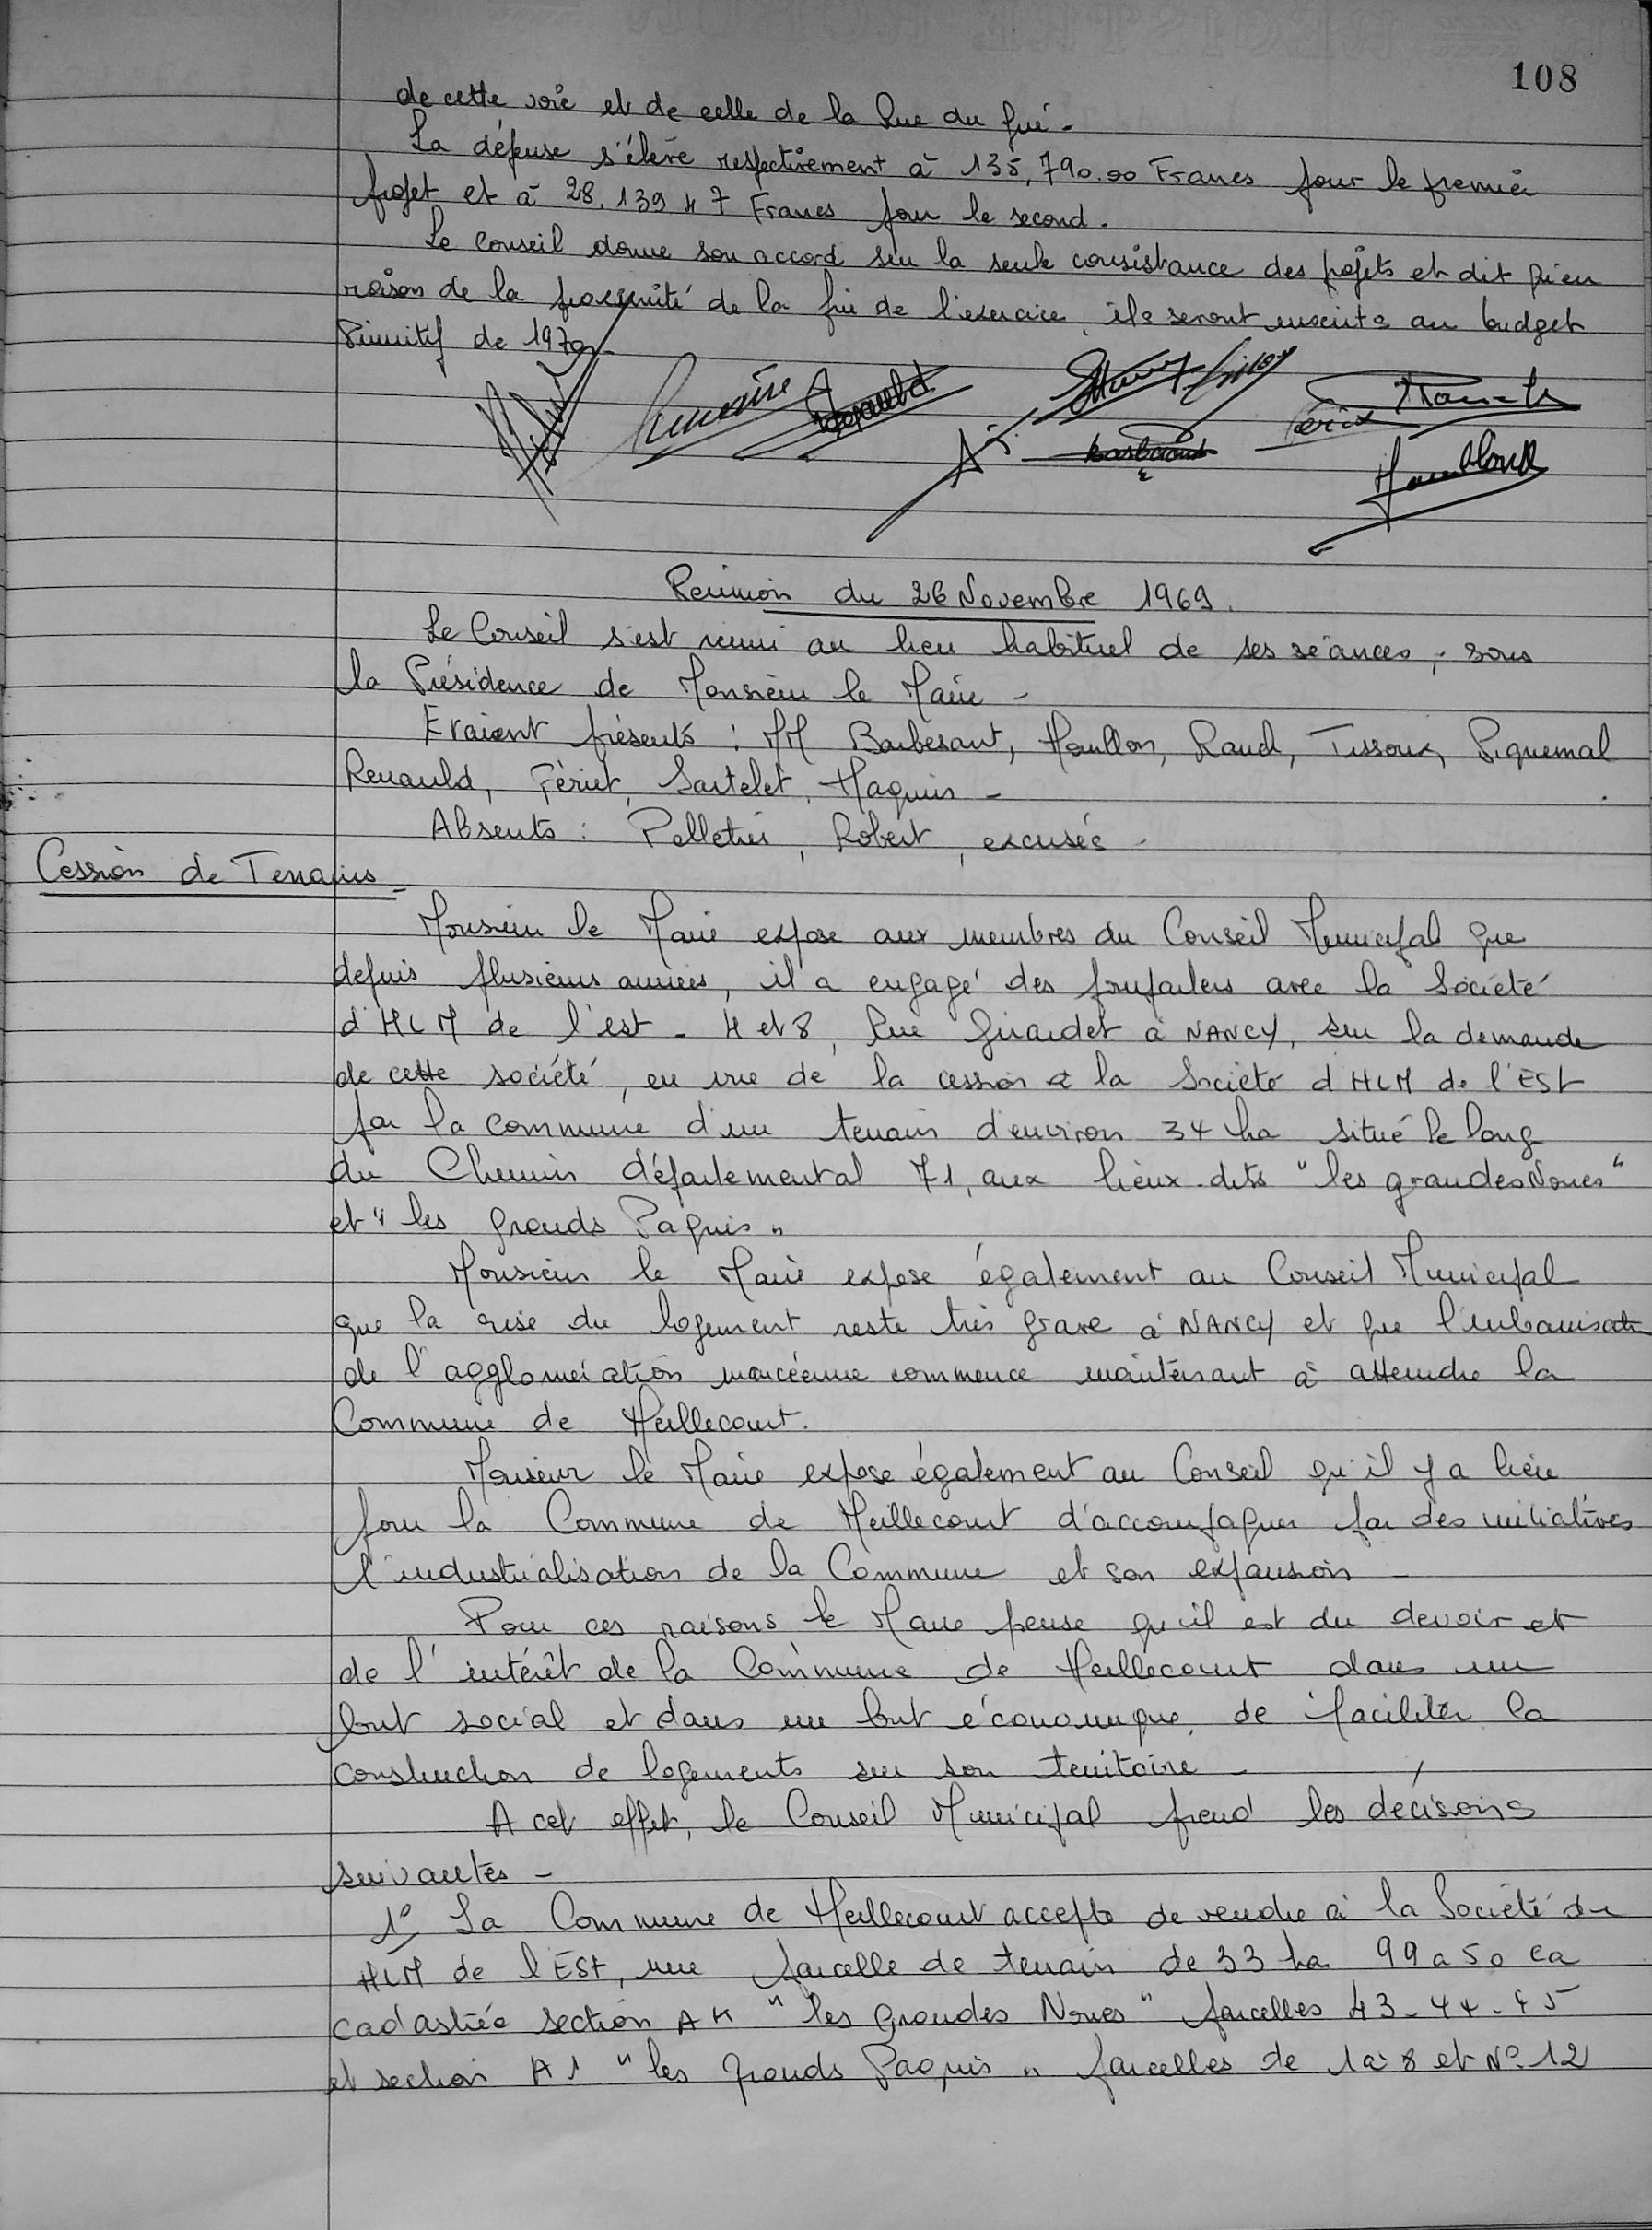 108
de cette voie et de celle de la Rue du Gué.
La dépense s'élève respectivement à 135,790.00 Francs pour le premier
projet et à 28,139 47 Francs pour le second.
Le Conseil donne son accord sur la seule consistance des projets et dit qu'en
raison de la proximité de la fin de l'exercice, ils seront inscrits au budget
Primitif de 1970.
Renauld
Réunion du 26 Novembre 1969.
Le Conseil s'est réuni au lieu habituel de ses séances, sous
la Présidence de Monsieur le Maire -
Etaient présents : MM Barbesant, Houllon, Raud, Tissoux, Piquemal
Renauld, Fériet, Sartelet, Haquin -
Absents : Pelletier, Robert, excusés -
Cession de Terrains -
Monsieur le Maire expose aux membres du Conseil Municipal que
depuis plusieurs années, il a engagé des pourparlers avec la Société
d'HLM de l'est - 4 et 8, Rue Girardet à NANCY, sur la demande
de cette société, en vue de la cession à la Société d'HLM de l'EST
par la commune d'un terrain d'environ 34 ha situé le long
du Chemin départemental 71, aux lieux-dits "les grandes Noues"
et "les grands Paquis"
Monsieur le Maire expose également au Conseil Municipal
que la crise du logement reste très grave à NANCY et que l'urbanisation
de l'agglomération nancéienne commence maintenant à atteindre la
Commune de Heillecourt.
Monsieur le Maire expose également au Conseil qu'il y a lieu
pour la Commune de Heillecourt d'accompagner par des initiatives
l'industrialisation de la Commune et son expansion -
Pour ces raisons le Maire pense qu'il est du devoir et
de l'intérêt de la Commune de Heillecourt dans un
but social et dans un but économique, de faciliter la
construction de logements sur son territoire -
A cet effet, le Conseil Municipal prend les décisions
suivantes -
1° La Commune de Heillecourt accepte de vendre à la Société des
HLM de l'EST, une parcelle de terrain de 33 ha 99 a 50 ca
cadastrée section AK "les Grandes Noues" parcelles 43-44-45
et section A1 "les Grands Paquis" parcelles de 1 à 8 et N° 12